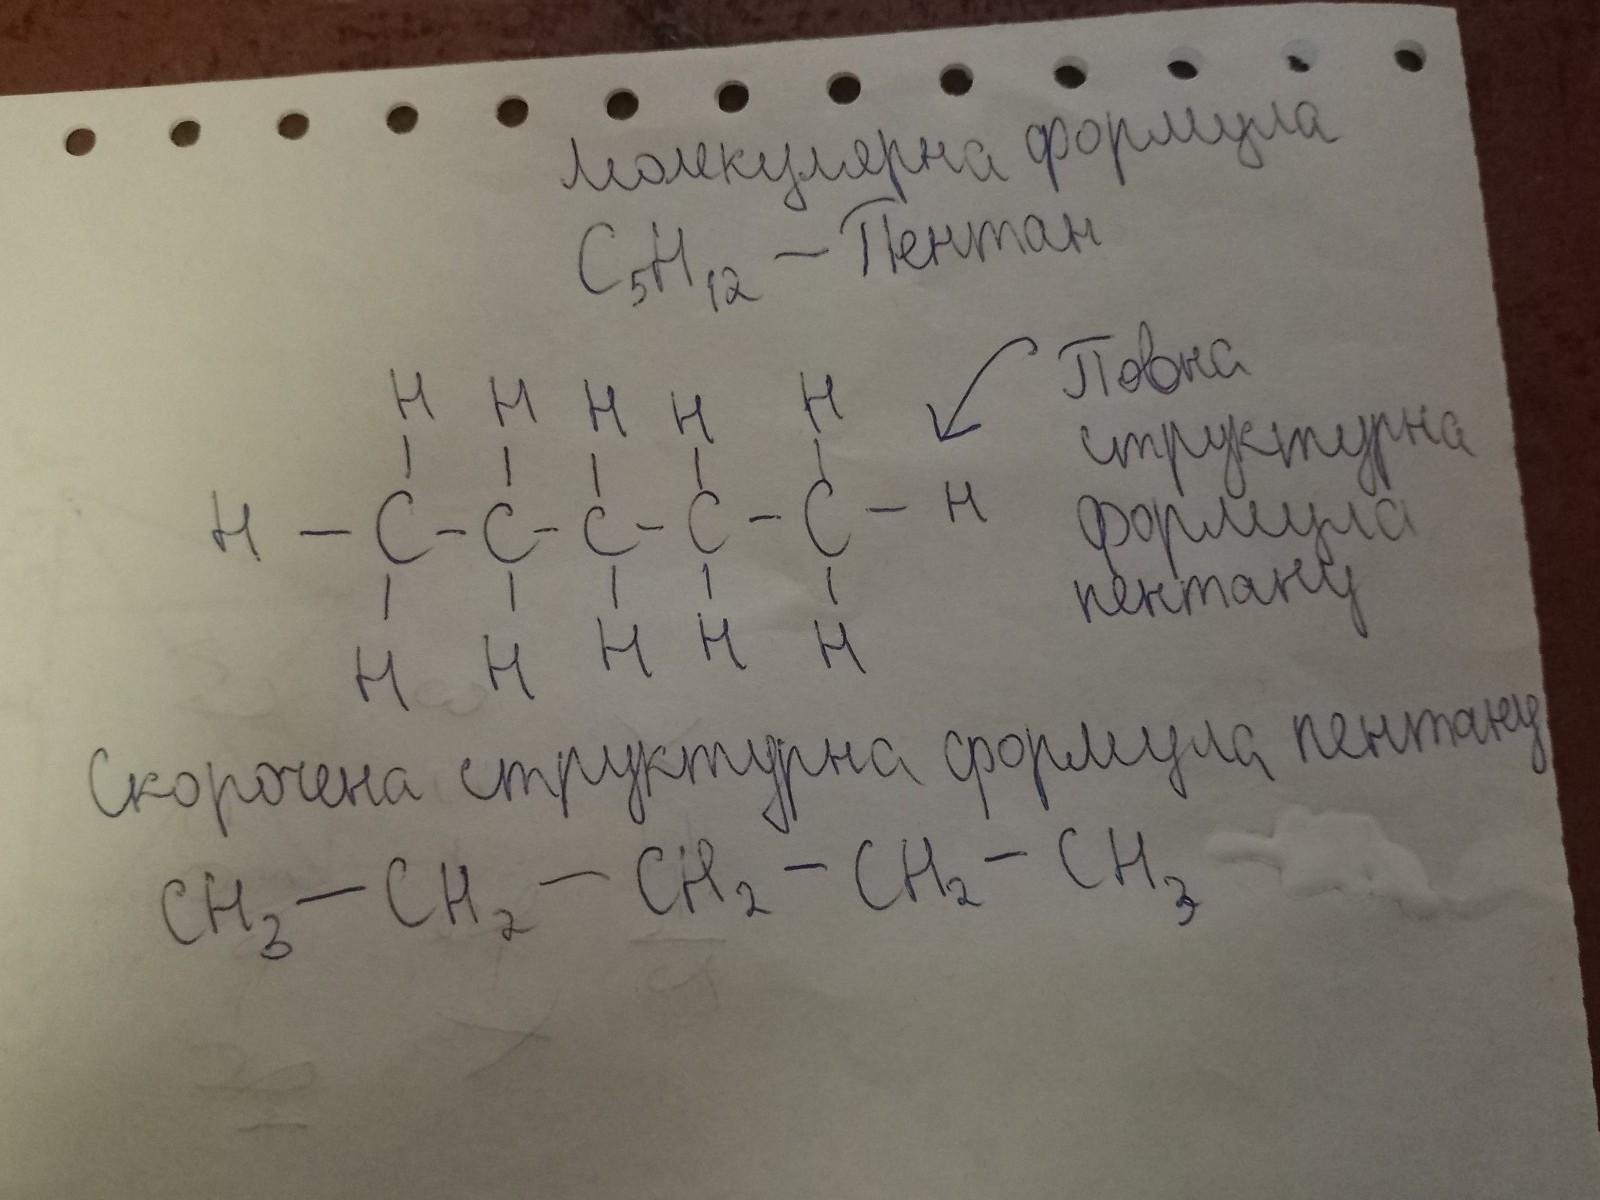 Молекулярна формула
C₅H₁₂ — Пентан
Повна
структурна
формула
пентану
H H H H H
| | | | |
H – C – C – C – C – C – H
| | | | |
H H H H H
Скорочена структурна формула пентану
CH₃ — CH₂ — CH₂ — CH₂ — CH₃